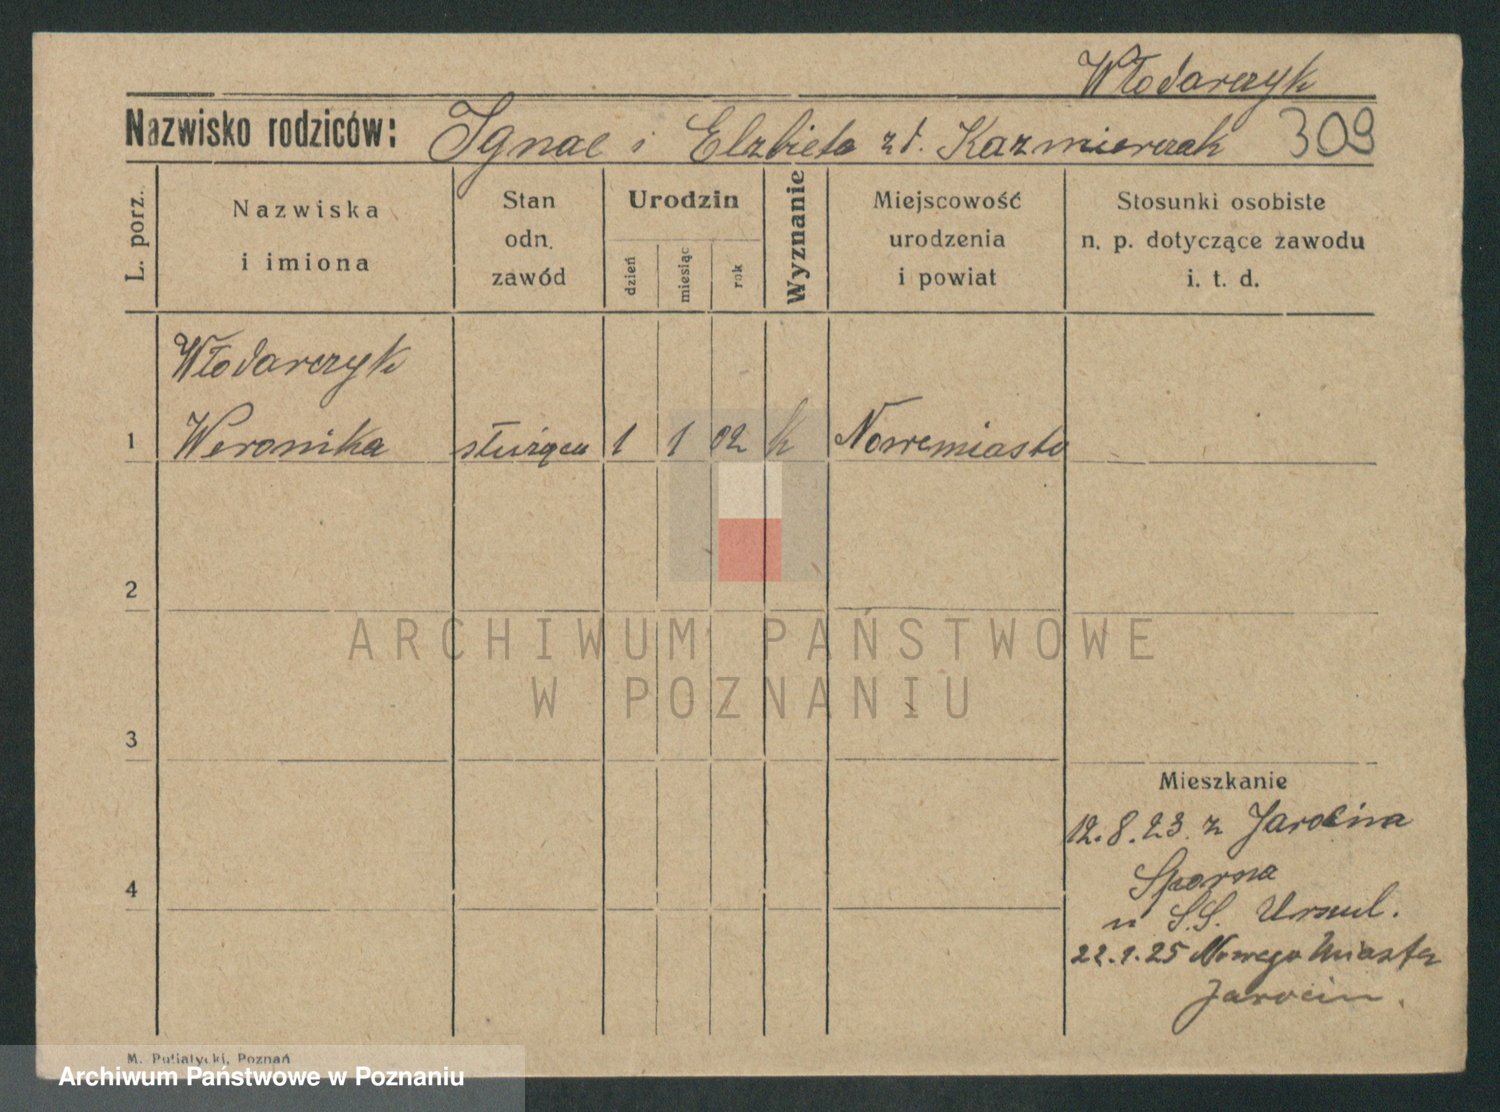 Włodarczyk
Nazwisko rodziców: Ignac i Elzbieta zd. Kazmierczak 309
L. porz.
Nazwiska
i imiona
Stan
odn.
zawód
Urodzin
dzień
miesiąc
rok
Wyznanie
Miejscowość
urodzenia
i powiat
Stosunki osobiste
n. p. dotyczące zawodu
i. t. d.
Włodarczyk
1 Weronika służąca 1 1 02 k Nowemiasto
2
ARCHIWUM PAŃSTWOWE
W POZNANIU
3
Mieszkanie
12.8.23. z Jarocina
4
Sporna
u S.S. Urszul.
22.1.25 Nowego Miasta
Jarocin.
M. Putiatycki, Poznań
Archiwum Państwowe w Poznaniu